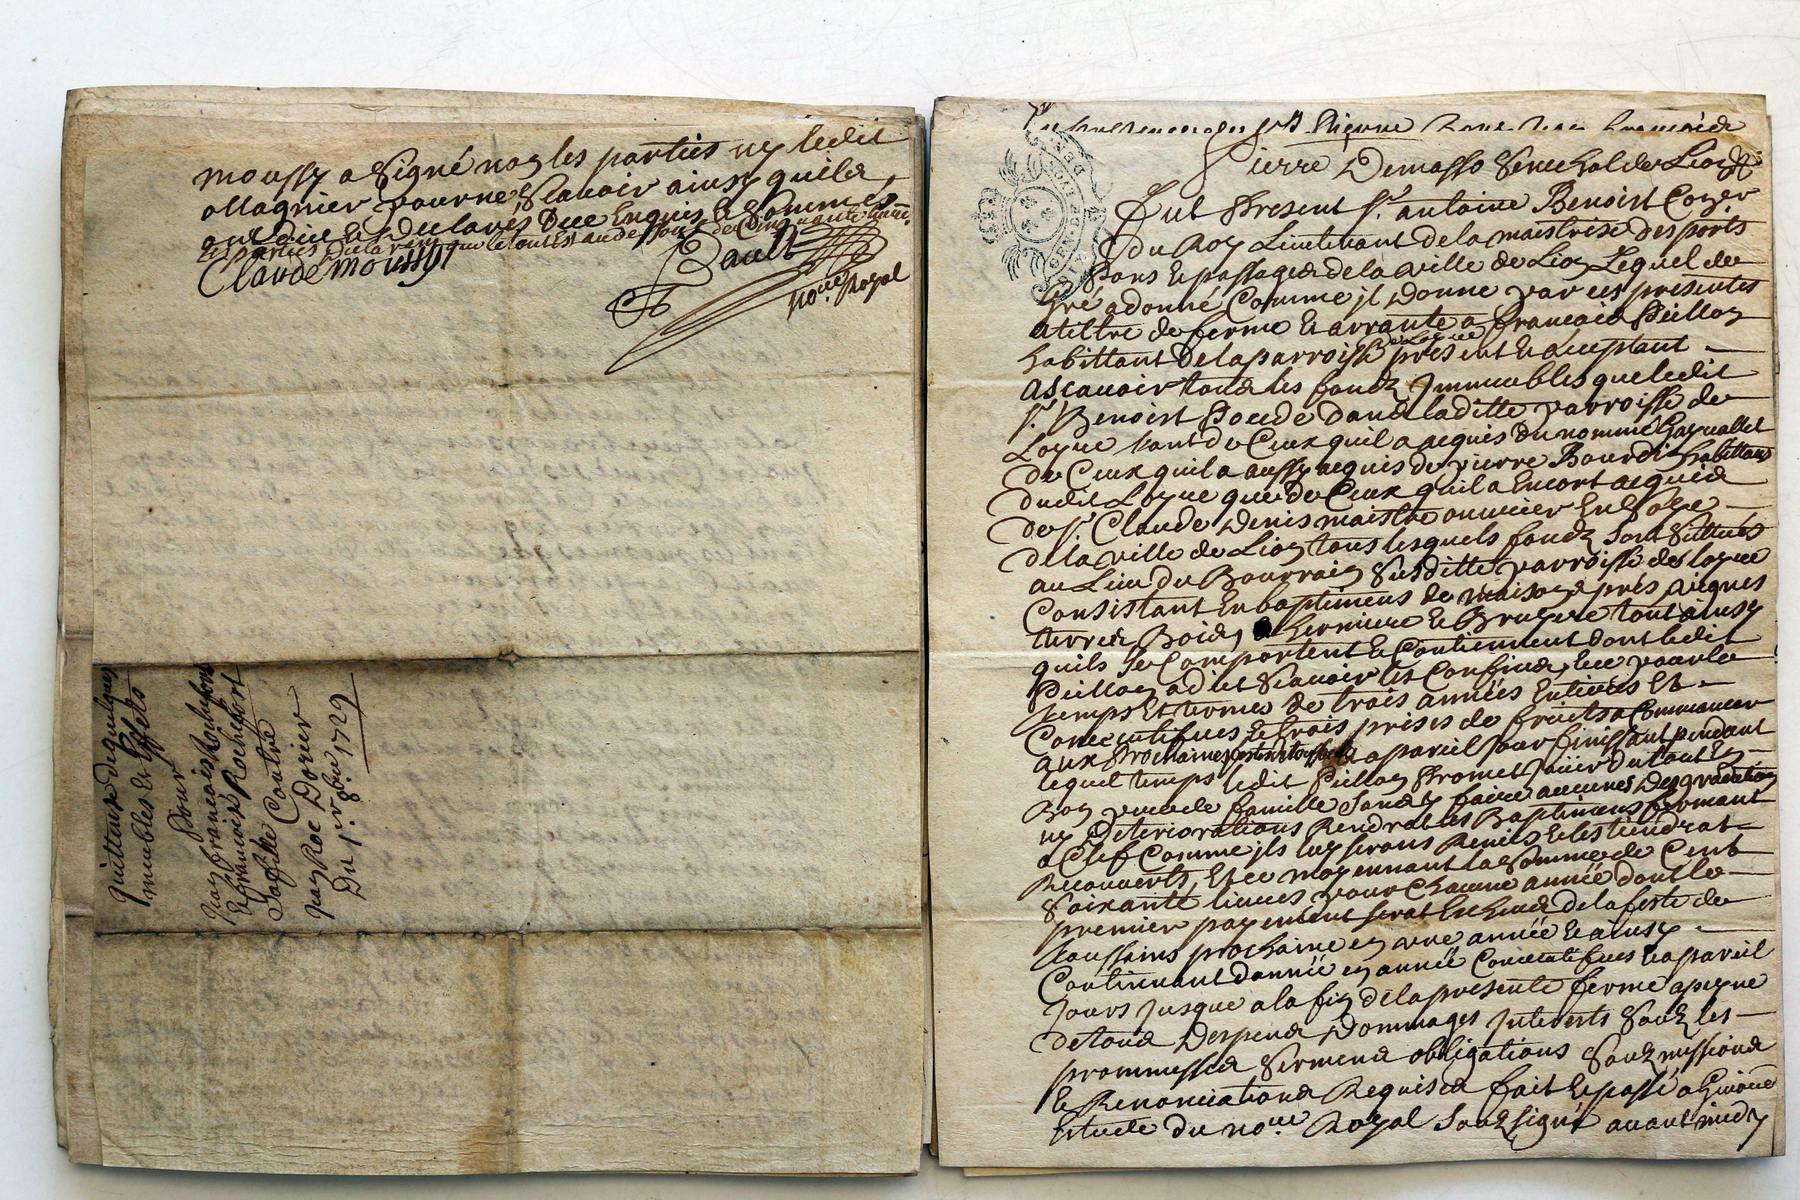 moussy a signé non les parties ny ledit
Magnier pour ne scavoir ainsy quils
ont dit et declarés Due Enquis et sommés
les parties declarent que le tout est au dessous de Cinquante livres
Claude moussy
Bault
no.re Royal
quittance de quelques
meubles et Effets
pour
Jean françois Rochefort
et françois Rochefort
Sa fille Contre
Jean Roc Dorier
Du 1.er 8bre 1729
Pierre Demasso Senechal de Lion
GEN DE LYON
Fut Present Sr. antoine Benoist Conyer
du Roy Lieutenant de la maistrise des ports
Pons et passages de la ville de Lion Lequel de
gré a donné Comme jl Donne par ces présentes
a tiltre de ferme et arrante a françois Pillon
habittant de la parroisse present et acceptant
Ascavoir tous les fonds Immeubles que ledit
Sr. Benoist Possede dans laditte parroisse de
Loyue tant de Ceux quil a acquis du nommé
de Ceux quil a aussy acquis de pierre Bourdin habittans
dudit Loyue que de Ceux quil a Encort acquis
de Sr. Claude Denis maistre ouvrier En Soye
de la ville de Lion tous lesquels fonds Sont Situés
au Lieu du Bourrain Susditte parroisse de Loyue
Consistant En baptimens de maison prés vignes
terres Bois herniere et Bruyere tout ainsy
quils Se Comportent et Contiennent dont ledit
Pillon a dit Scavoir les Confins, Et ce pour le
temps Et terme de trois années Entieres Et
Consecutifues et trois prises de fruits a Commancer
aux Prochaines a pareil jour finissant pendant
lequel temps ledit Pillon Promet Jouir du tout En
Bon pere de famille Sans y faire aucunes Degradations
ny Deteriorations Rendrat les Baptimens fermant
a Clef Comme jls luy seront Remis et les tiendrat
Recouverts, Et ce moyennant la Somme de Cent
Soixante livres pour Chacune année dont le
premier payement serat Eschus de la feste de
Toussains prochaine en une année et ainsy
Continuant d'année en année Consecutifues et a pareil
jours jusque a la fin de la presente ferme a peyne
de tous Despens Dommages Interests Soubz les
prommesses Sermens obligations Soubzmissions
et Renonciations Requises fait et passé a
Estude du no.re Royal Soubzsigné avant midy